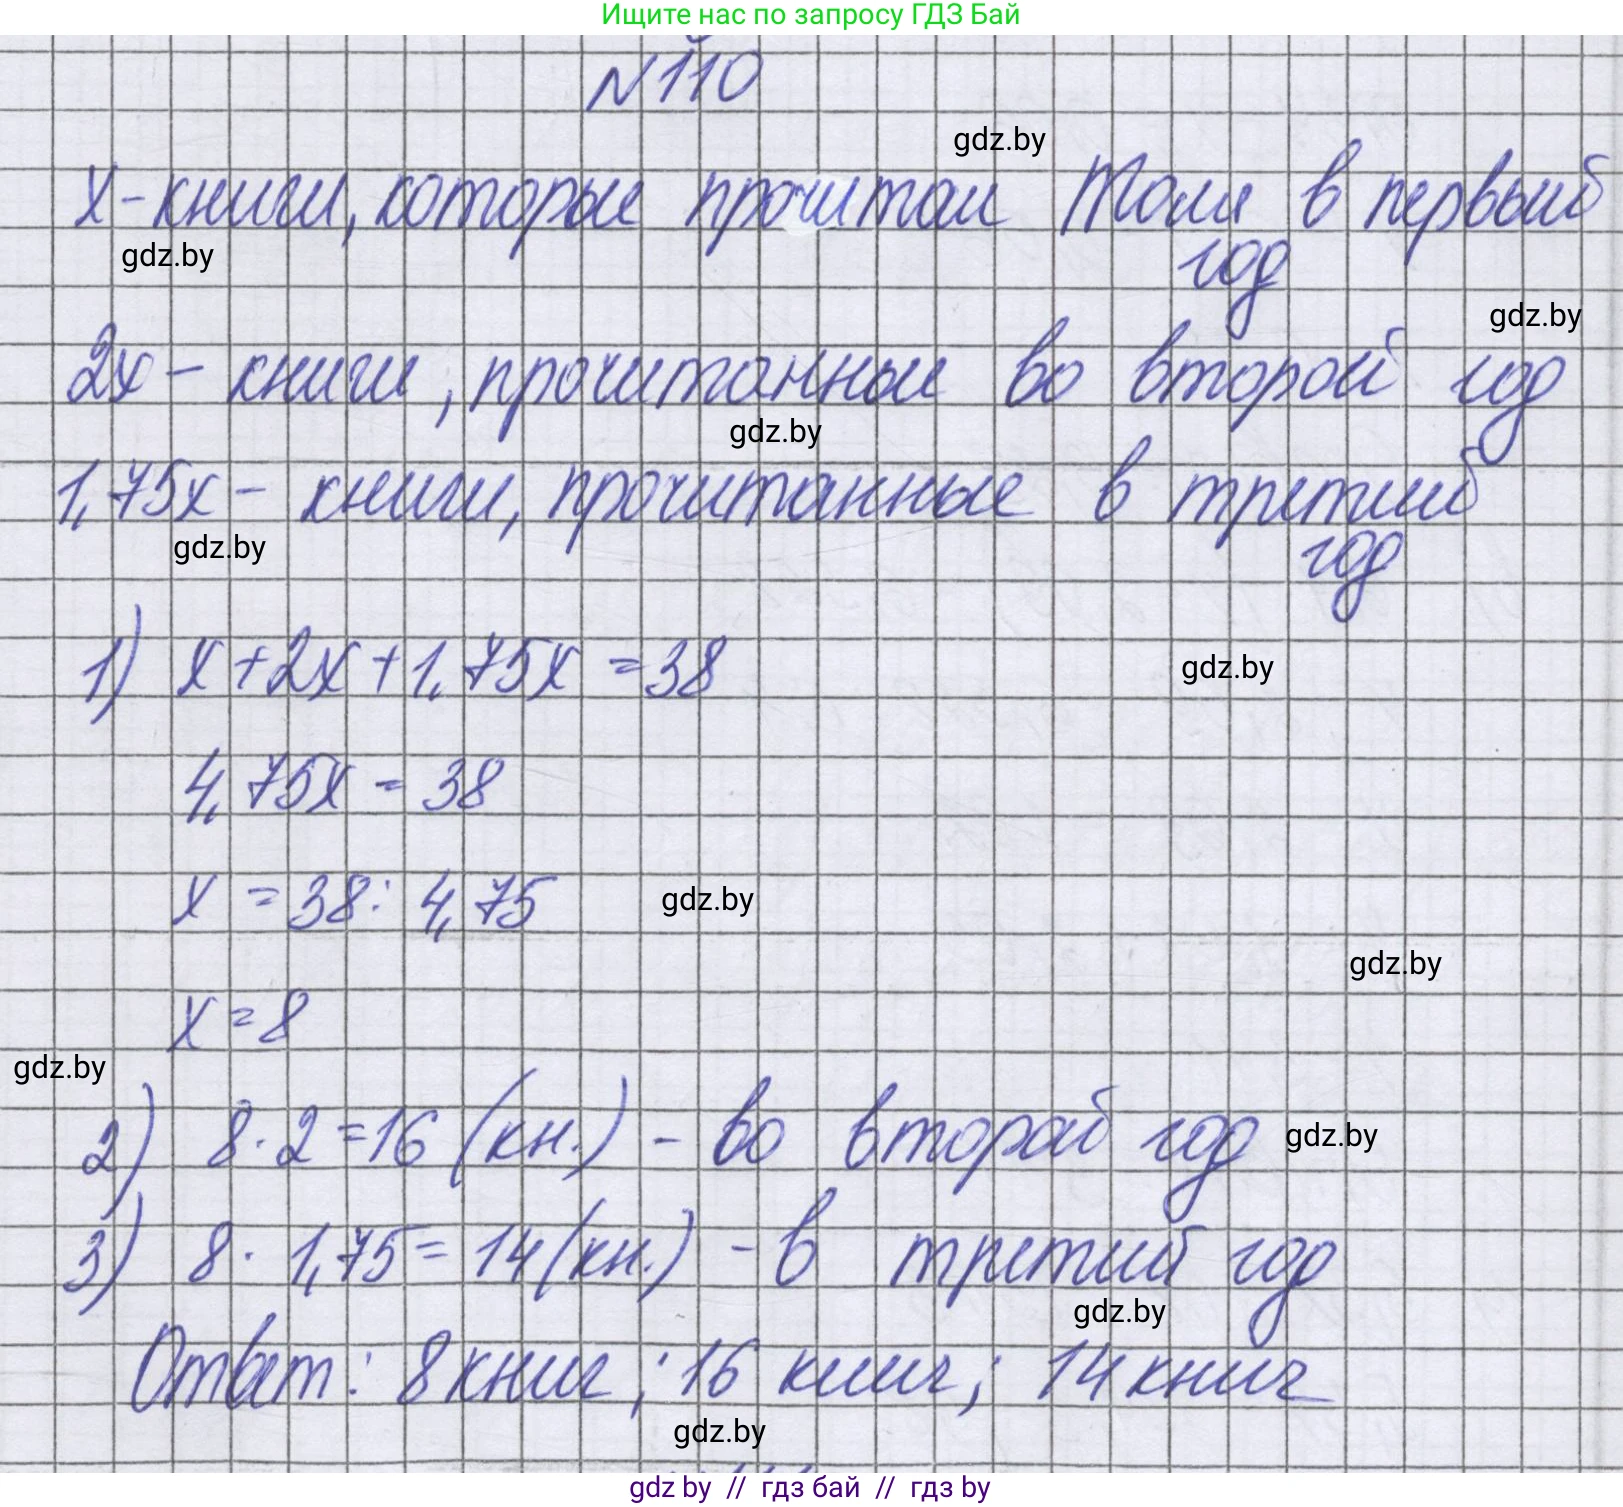 Ищите нас по запросу ГДЗ Бай
N110
gdz.by
х - книги, которые прочитал Толя в первый
год
gdz.by
gdz.by
2х - книги, прочитанные во второй год
gdz.by
1,75х - книги, прочитанные в третий
год
gdz.by
1) х + 2х + 1,75х = 38
gdz.by
4,75х = 38
х = 38 : 4,75
gdz.by
gdz.by
х = 8
gdz.by
2) 8 · 2 = 16 (кн.) - во второй год
gdz.by
3) 8 · 1,75 = 14 (кн.) - в третий год
gdz.by
Ответ: 8 книг; 16 книг; 14 книг
gdz.by
gdz by // гдз бай // гдз by